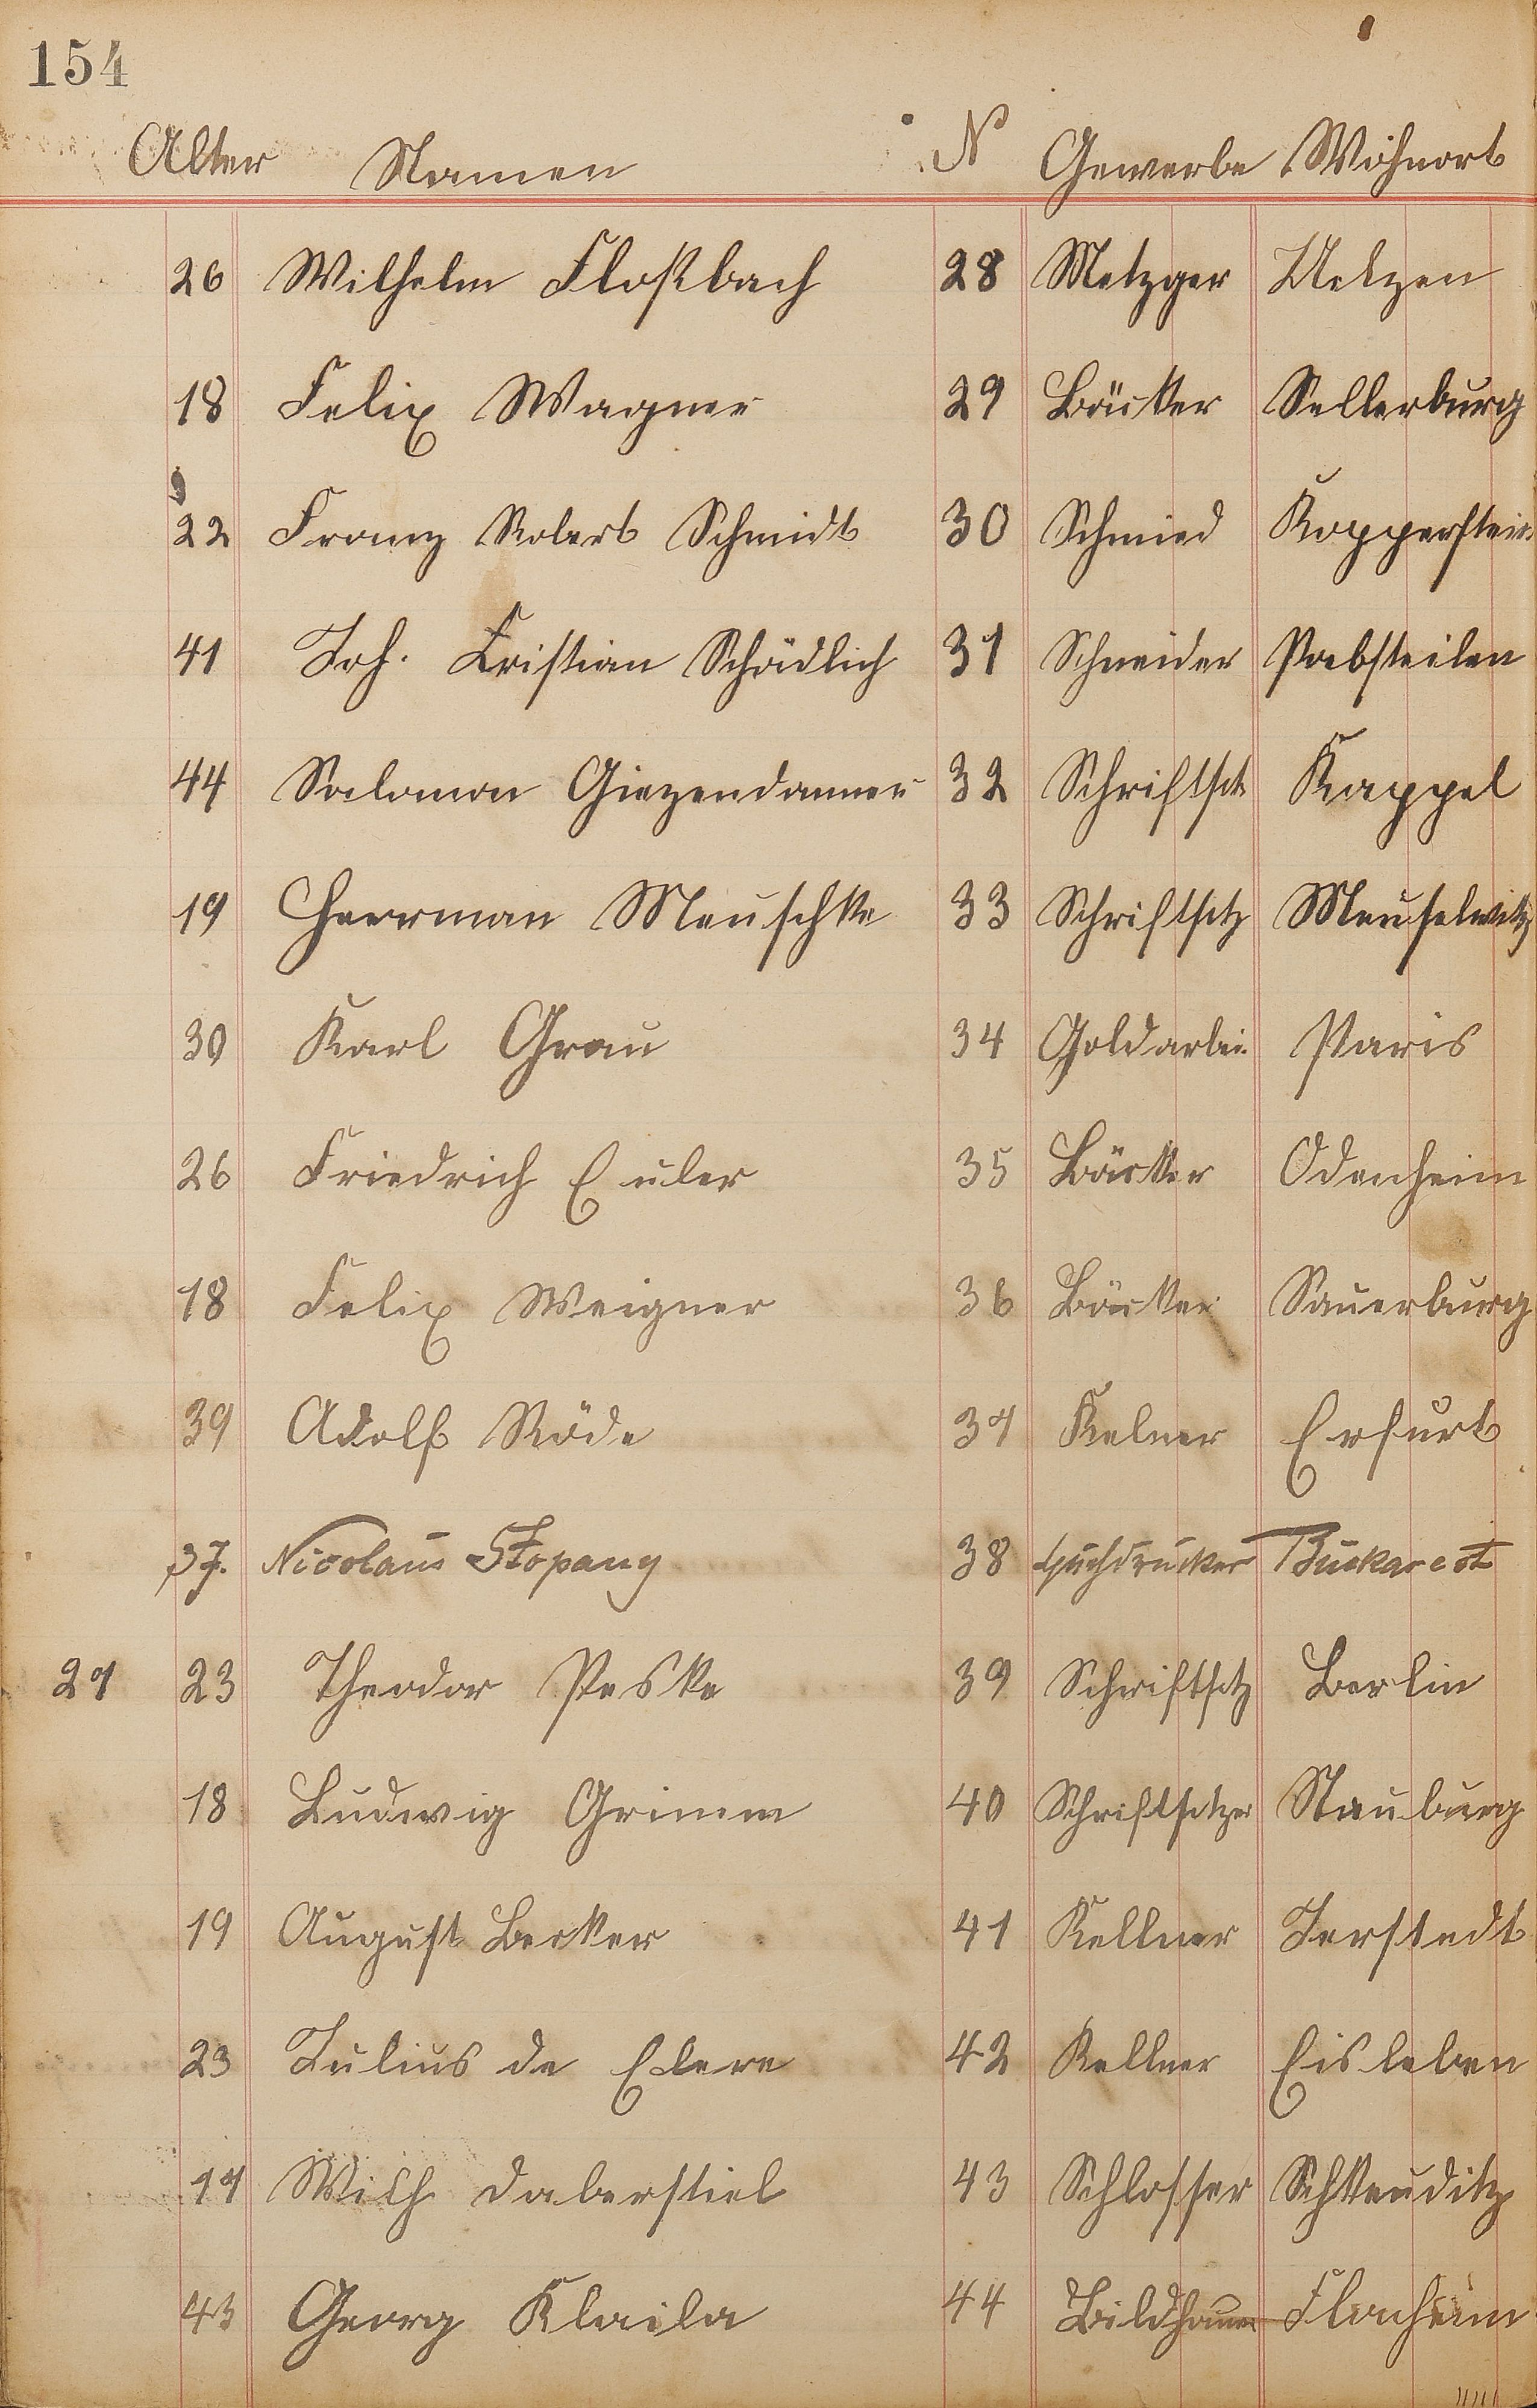 154
Alter Namen N Gewerbe Wohnort
26 Wilhelm Floßbach 28 Metzger Uelzen
18 Felix Wagner 29 Bäcker Sellerburg
22 Franz Robert Schmidt 30 Schmied Kopperstein
41 Joh. Kristian Schädlich 31 Schneider Pabsteilen
44 Salomon Giezendanner 32 Schriftset Kappel
19 Herrman Meuschke 33 Schriftsetz Meuselwitz
30 Karl Grau 34 Goldarbei Paris
26 Friedrich Euler 35 Bäcker Odenheim
18 Felix Weigner 36 Bäcker Sauerburg
39 Adolf Röde 37 Kelner Erfurt
37. Nicolaus Stopany 38 buchdrucker Buckarest
27 23 Theodor Peske 39 Schriftsetz Berlin
18 Ludwig Grimm 40 Schriftsetzer Nauburg
19 August Becker 41 Kellner Ierstedt
23 Julius de Clere 42 Kellner Eisleben
17 Wilh Daberstiel 43 Schlosser Schkeuditz
43 Georg Klaila 44 Bildhauer Flonheim